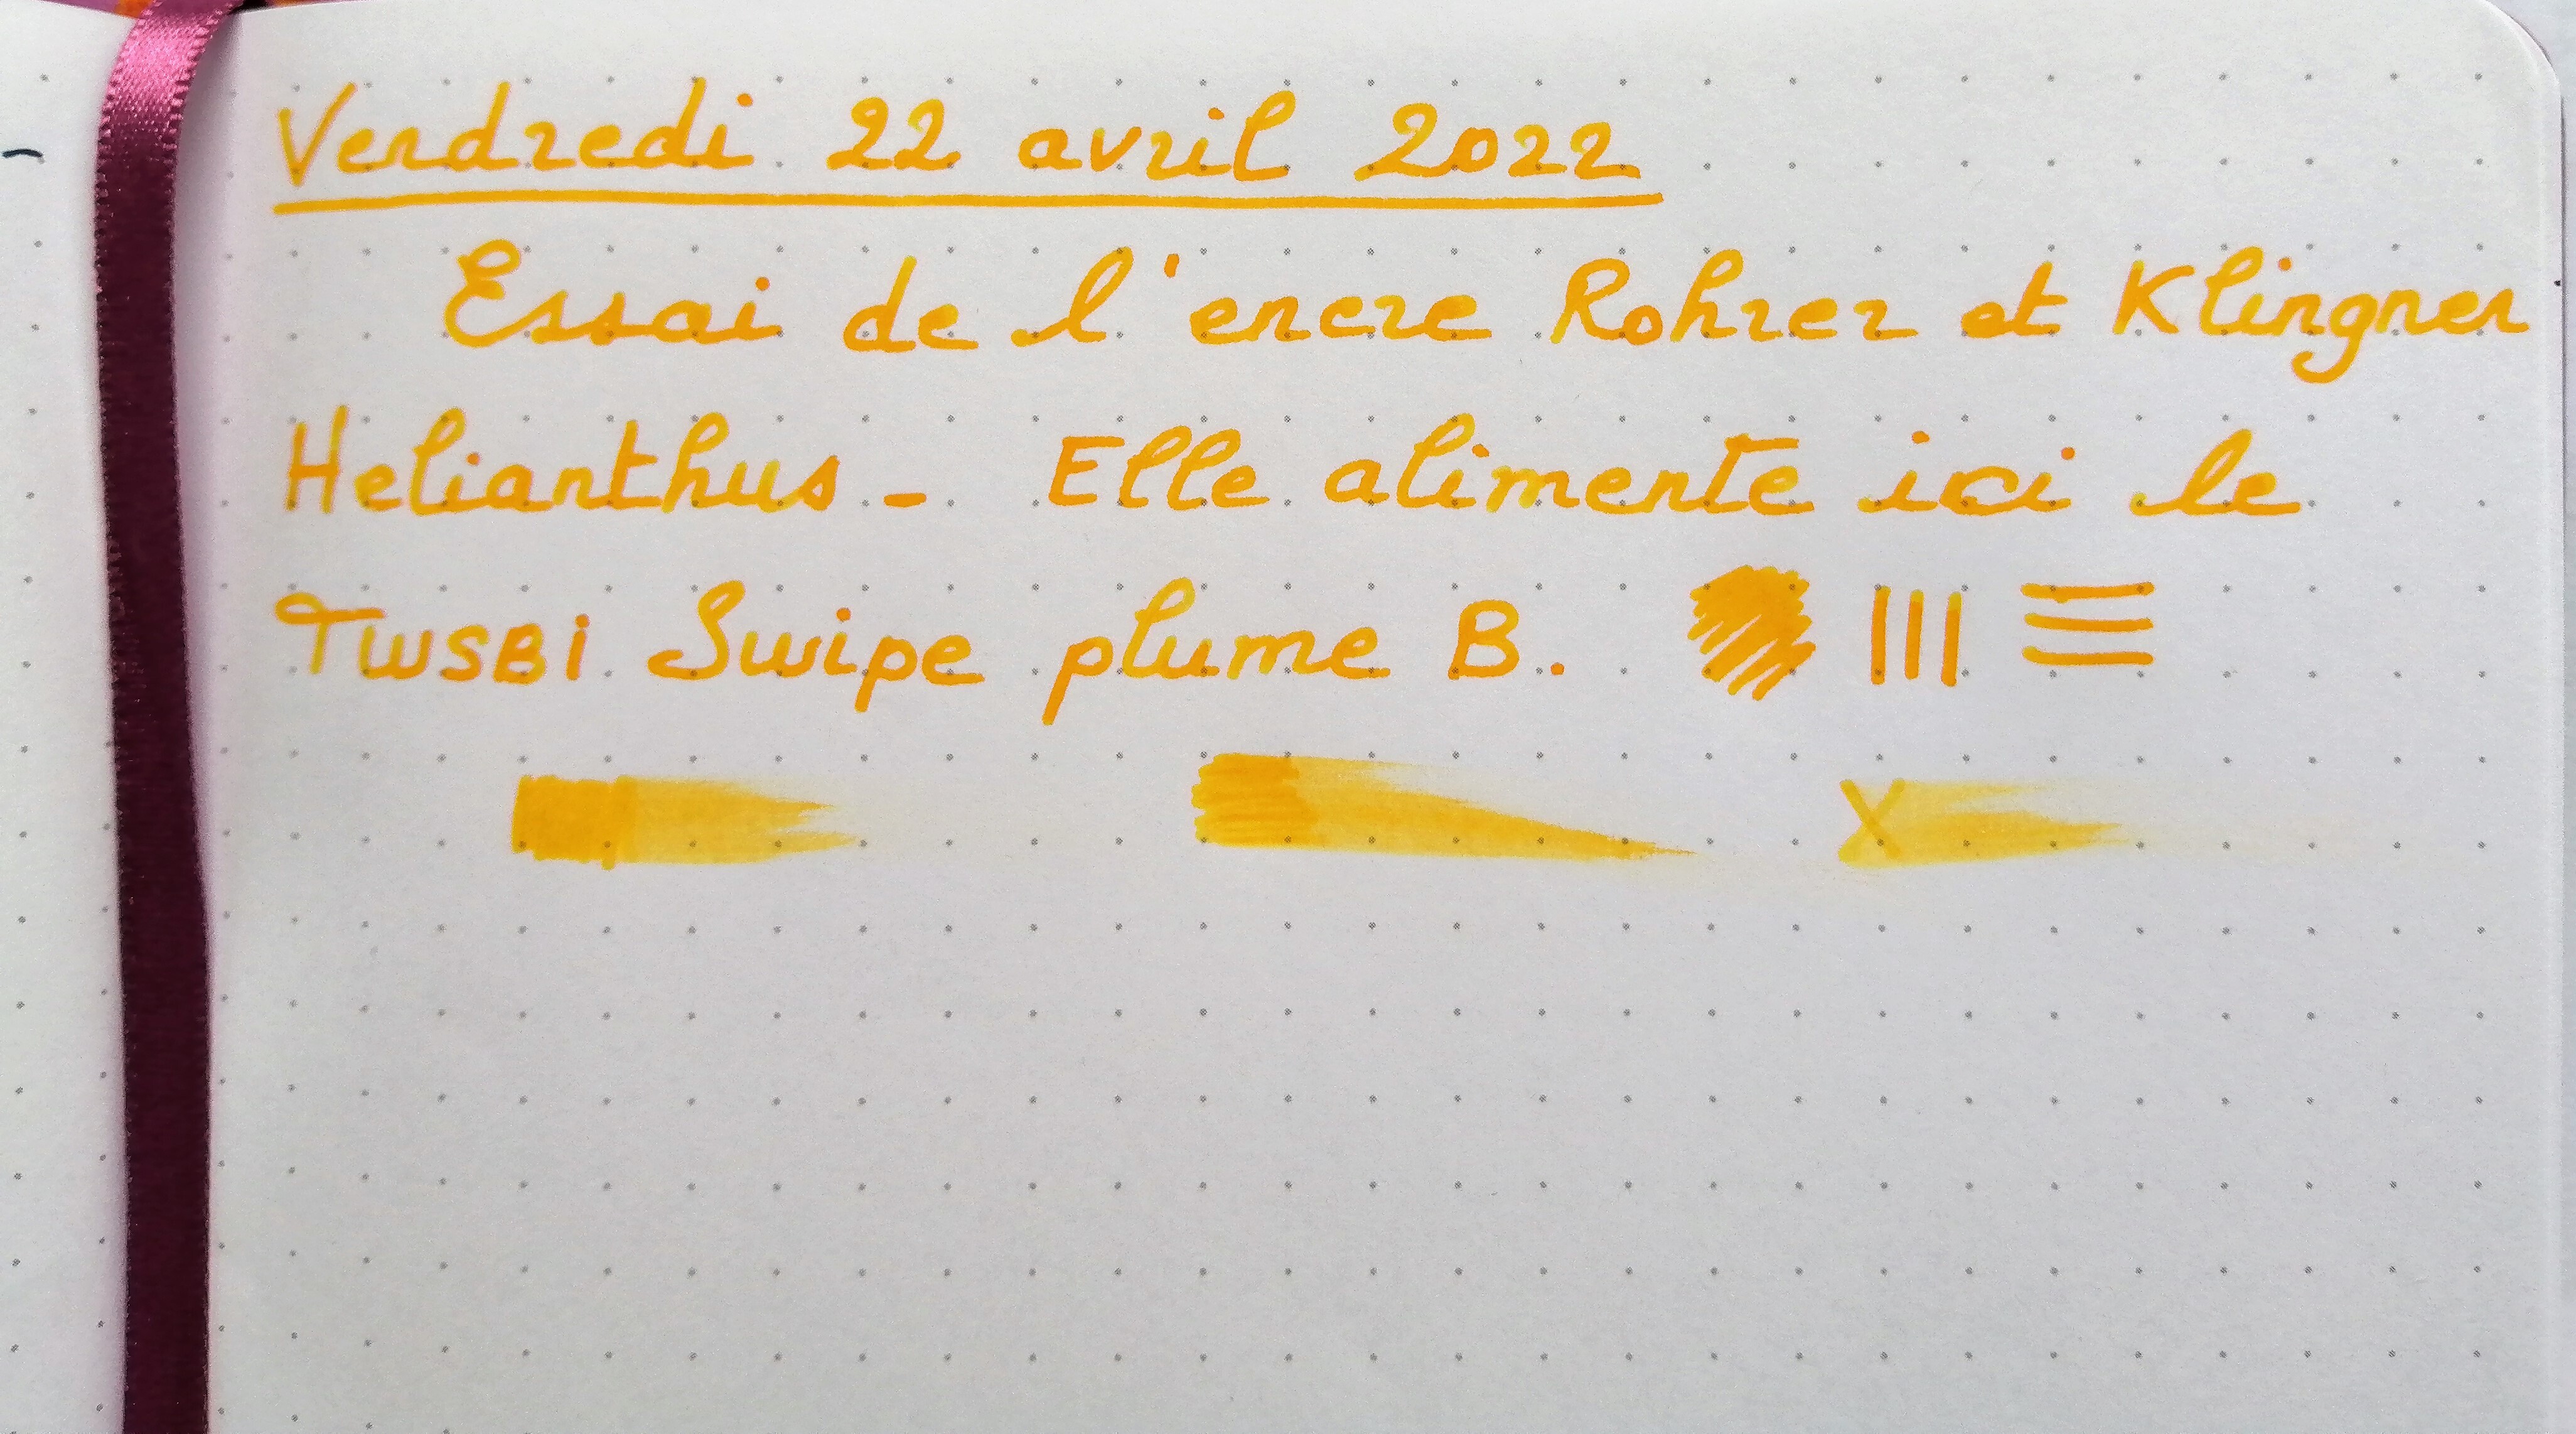 Vendredi 22 avril 2022
Essai de l'encre Rohrer et Klingner
Helianthus - Elle alimente ici le
TWSBI Swipe plume B.